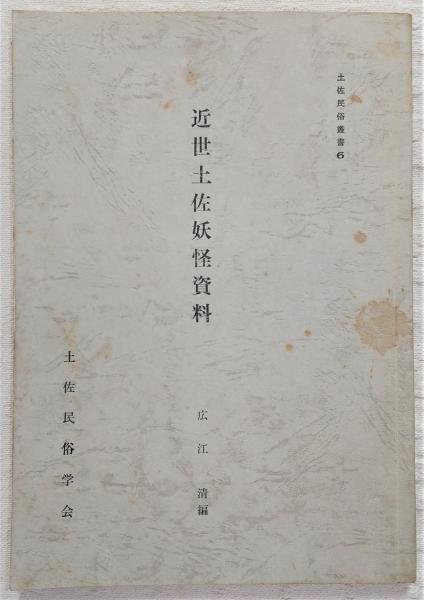 土佐民俗叢書6
近世土佐妖怪資料
広江清編
土佐民俗学会